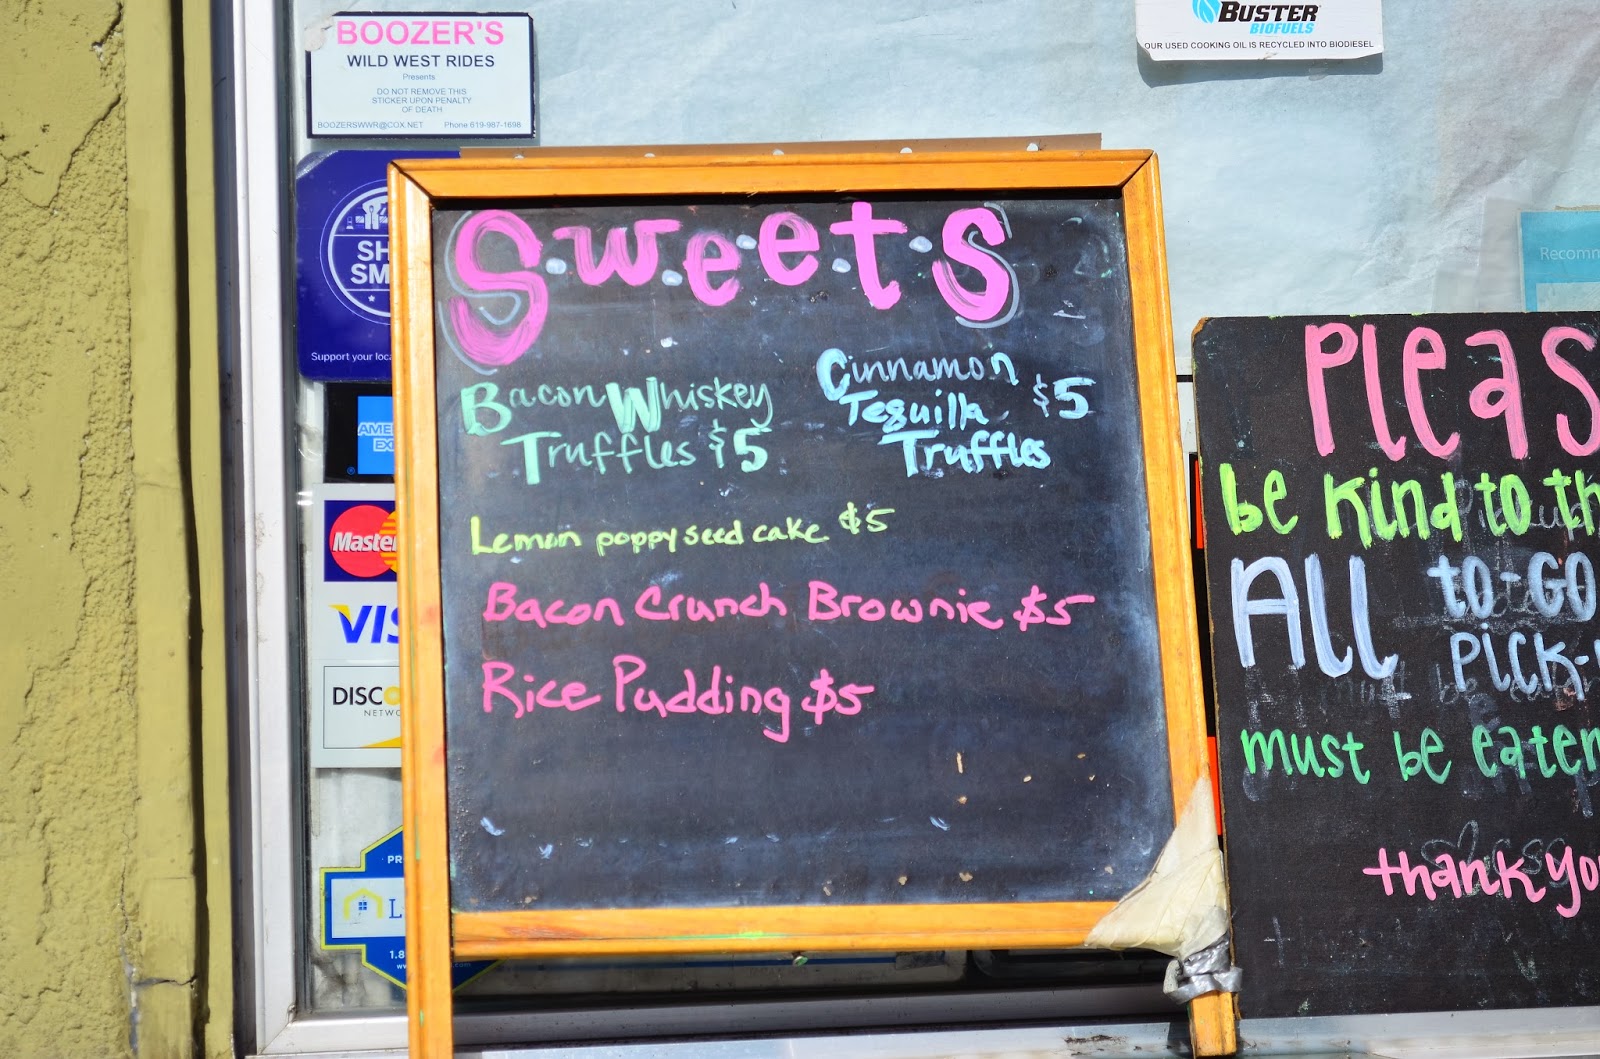 BOOZER'S
WILD WEST RIDES
Presents
DO NOT REMOVE THIS
STICKER UPON PENALTY
OF DEATH
BOOZERSWWR@COX.NET Phone 619-987-1698
BUSTER
BIOFUELS
OUR USED COOKING OIL IS RECYCLED INTO BIODIESEL
SH
SM
Support your loca
AME
EX
Master
VIS
DISCO
NETWO
PR
L
1.8
S.w.e.e.t.s
Bacon Whiskey
Truffles $5
Cinnamon
Tequilla $5
Truffles
Lemon poppyseed cake $5
Bacon Crunch Brownie $5
Rice Pudding $5
Recomm
Pleas
be kind to th
All to-GO
Pick-
must be eaten
thank yo